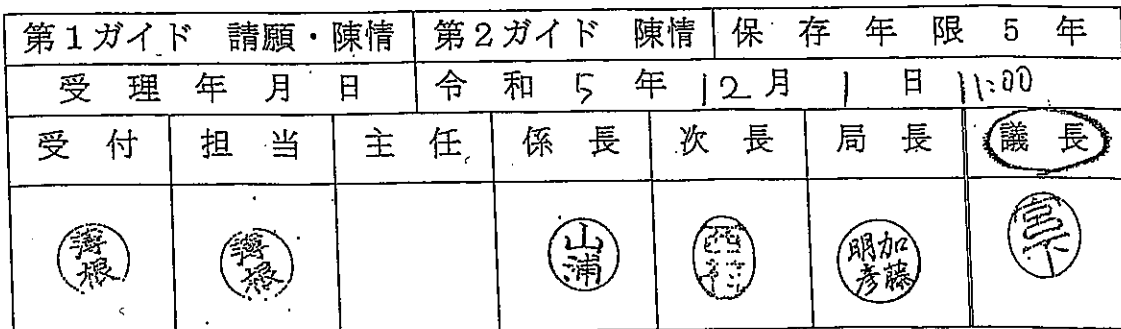 第1ガイド 請願・陳情 第2ガイド 陳情 保存年限5年
受理年月日 令和5年12月1日 11:00
受付 担当 主任 係長 次長 局長 議長
山浦 加藤明彦 宮下